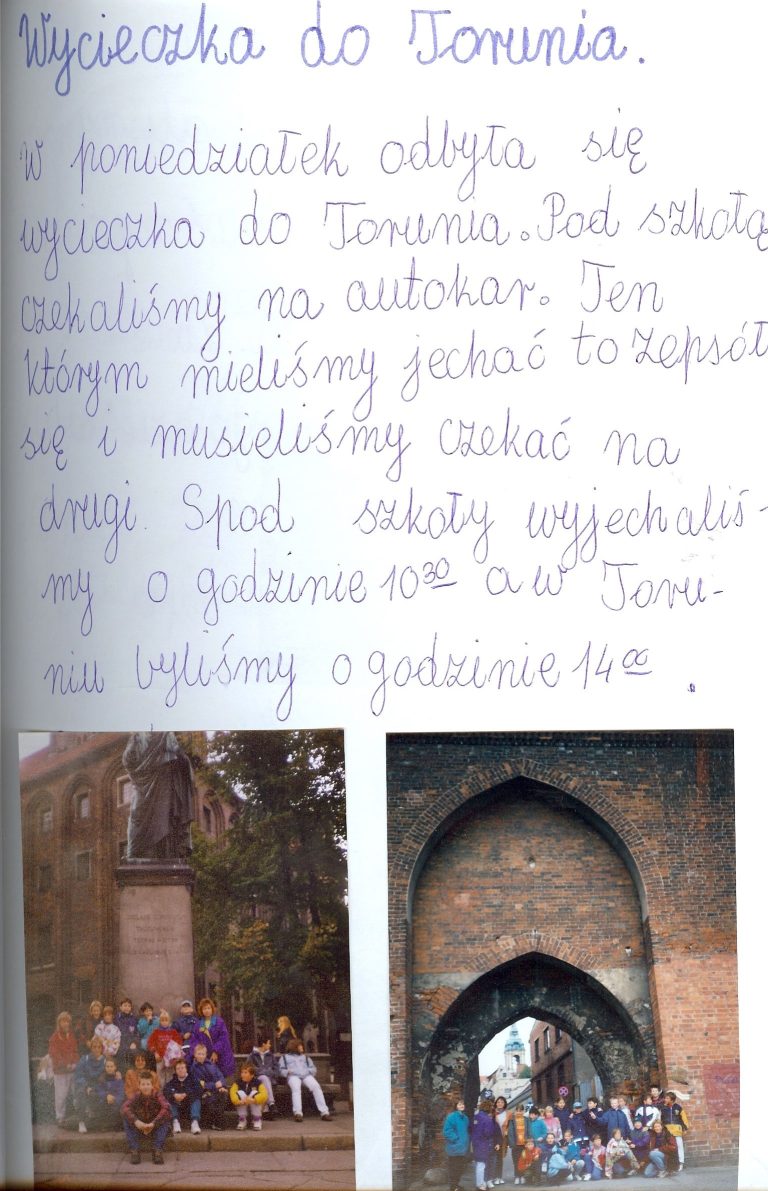 Wycieczka do Torunia.
W poniedziałek odbyła się
wycieczka do Torunia. Pod szkołą
czekaliśmy na autokar. Ten
którym mieliśmy jechać to zepsół
się i musieliśmy czekać na
drugi. Spod szkoły wyjechaliś-
my o godzinie 10³⁰ a w Toru-
niu byliśmy o godzinie 14⁰⁰.